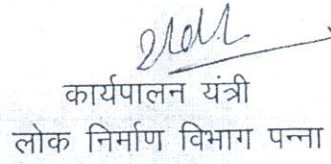 कार्यपालन यंत्री
लोक निर्माण विभाग पन्ना